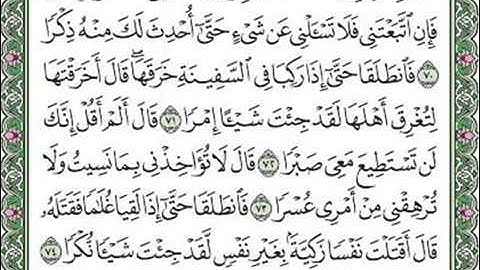 فَإِنِ ٱتَّبَعْتَنِى فَلَا تَسْـَٔلْنِى عَن شَىْءٍ حَتَّىٰٓ أُحْدِثَ لَكَ مِنْهُ ذِكْرًا
﴿٧٠﴾ فَٱنطَلَقَا حَتَّىٰٓ إِذَا رَكِبَا فِى ٱلسَّفِينَةِ خَرَقَهَا ۖ قَالَ أَخَرَقْتَهَا
لِتُغْرِقَ أَهْلَهَا لَقَدْ جِئْتَ شَيْـًٔا إِمْرًا ﴿٧١﴾ قَالَ أَلَمْ أَقُلْ إِنَّكَ
لَن تَسْتَطِيعَ مَعِىَ صَبْرًا ﴿٧٢﴾ قَالَ لَا تُؤَاخِذْنِى بِمَا نَسِيتُ وَلَا
تُرْهِقْنِى مِنْ أَمْرِى عُسْرًا ﴿٧٣﴾ فَٱنطَلَقَا حَتَّىٰٓ إِذَا لَقِيَا غُلَٰمًا فَقَتَلَهُۥ
قَالَ أَقَتَلْتَ نَفْسًا زَكِيَّةًۢ بِغَيْرِ نَفْسٍ لَّقَدْ جِئْتَ شَيْـًٔا نُّكْرًا ﴿٧٤﴾